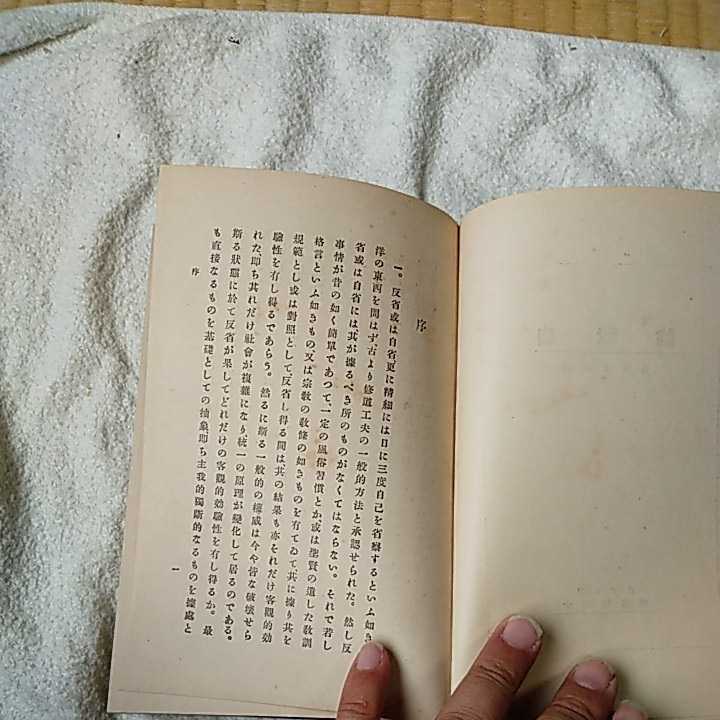 序
一。反省或は自省更に精細には日に三度自己を省察するといふ如き
洋の東西を問はず、古より修道工夫の一般的方法と承認せられた。然し反
省或は自省には、其が據るべき所のものがなくてはならない。それで若し
事情が昔の如く簡單であつて、一定の風俗習慣とか或は聖賢の遺した敎訓
格言といふ如きもの又は宗敎の敎條の如きものを有てゐて、其に據り其を
規範とし或は對照として、反省し得る間は、其の結果も亦それだけ客觀的效
驗性を有し得るであらう。然るに斯る一般的の權威は今や皆な破壞せら
れた、卽ち其れだけ社會が複雜になり統一の原理が變化して居るのである。
斯る狀態に於て反省が果してどれだけの客觀的效驗性を有し得るか。最
も直接なるものを基礎としての抽象卽ち主我的獨斷的なるものを據處と
序
一